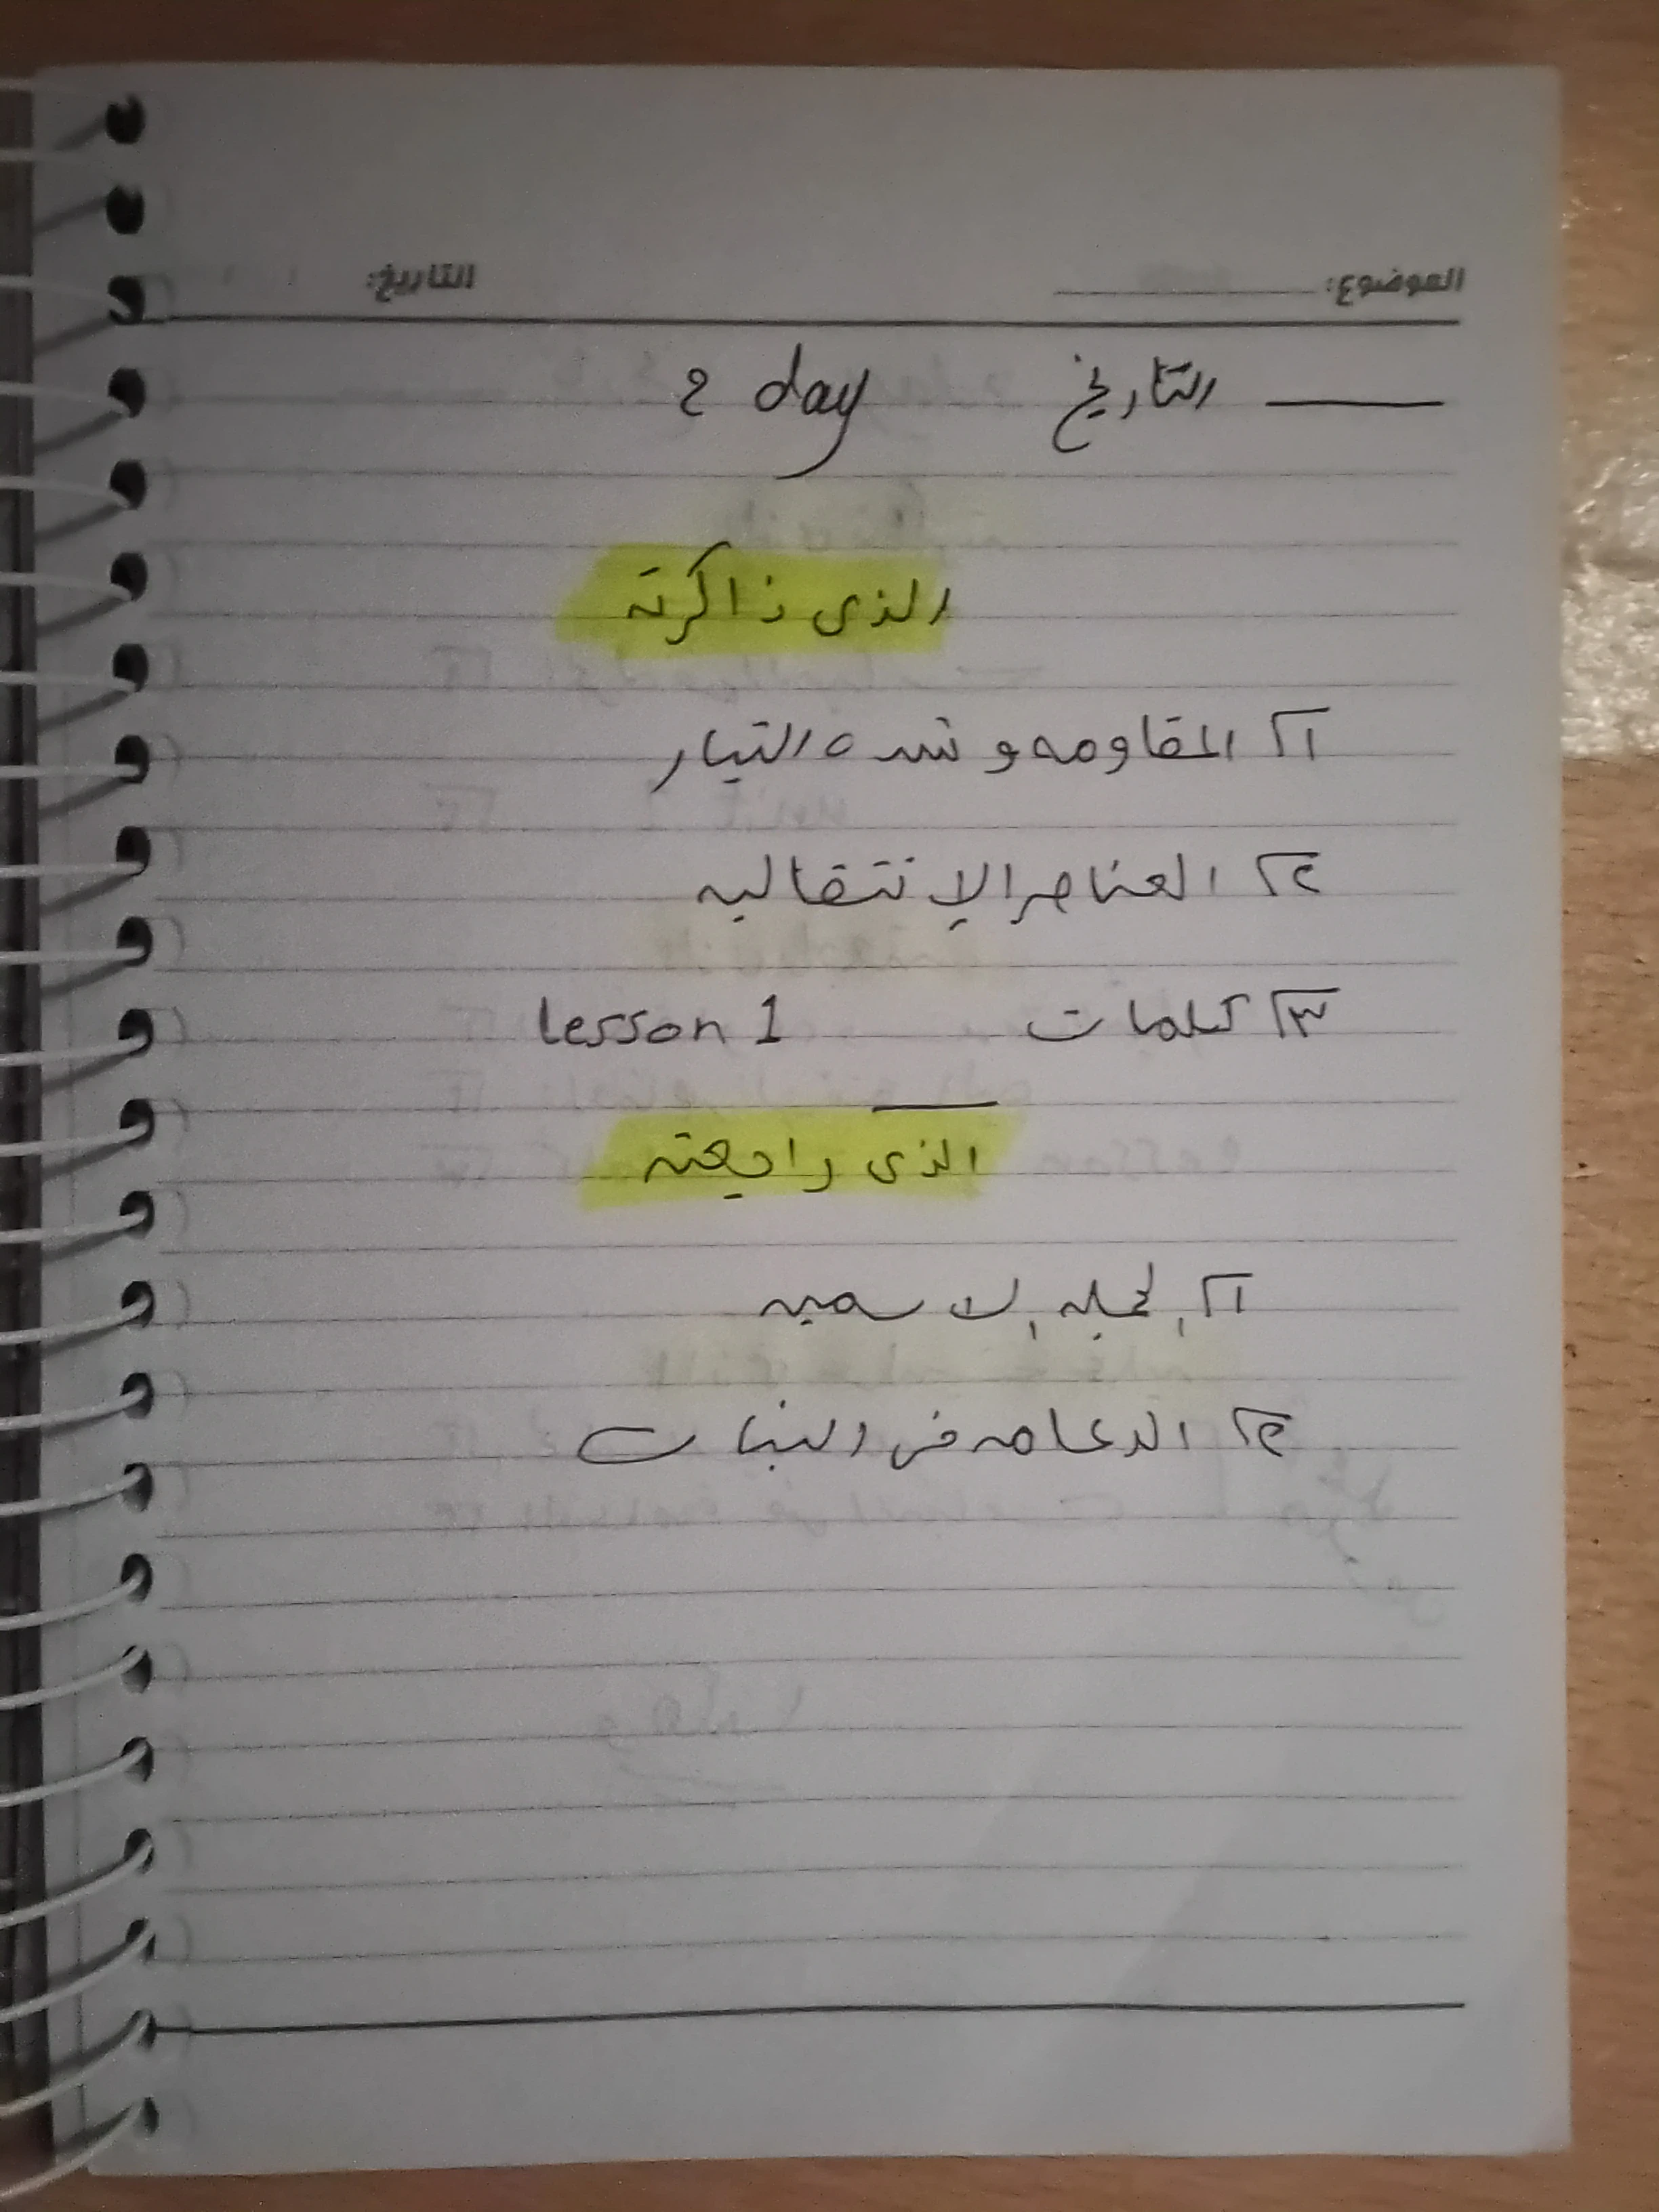 الموضوع: التاريخ:
التاريخ 2 day
الذى ذاكرته
١) المقاومه و شده التيار
٢) العناصر الإنتقاليه
٣) كلمات lesson 1
الذى راجعته
١) الجمله الاسميه
٢) الدعامه فى النبات